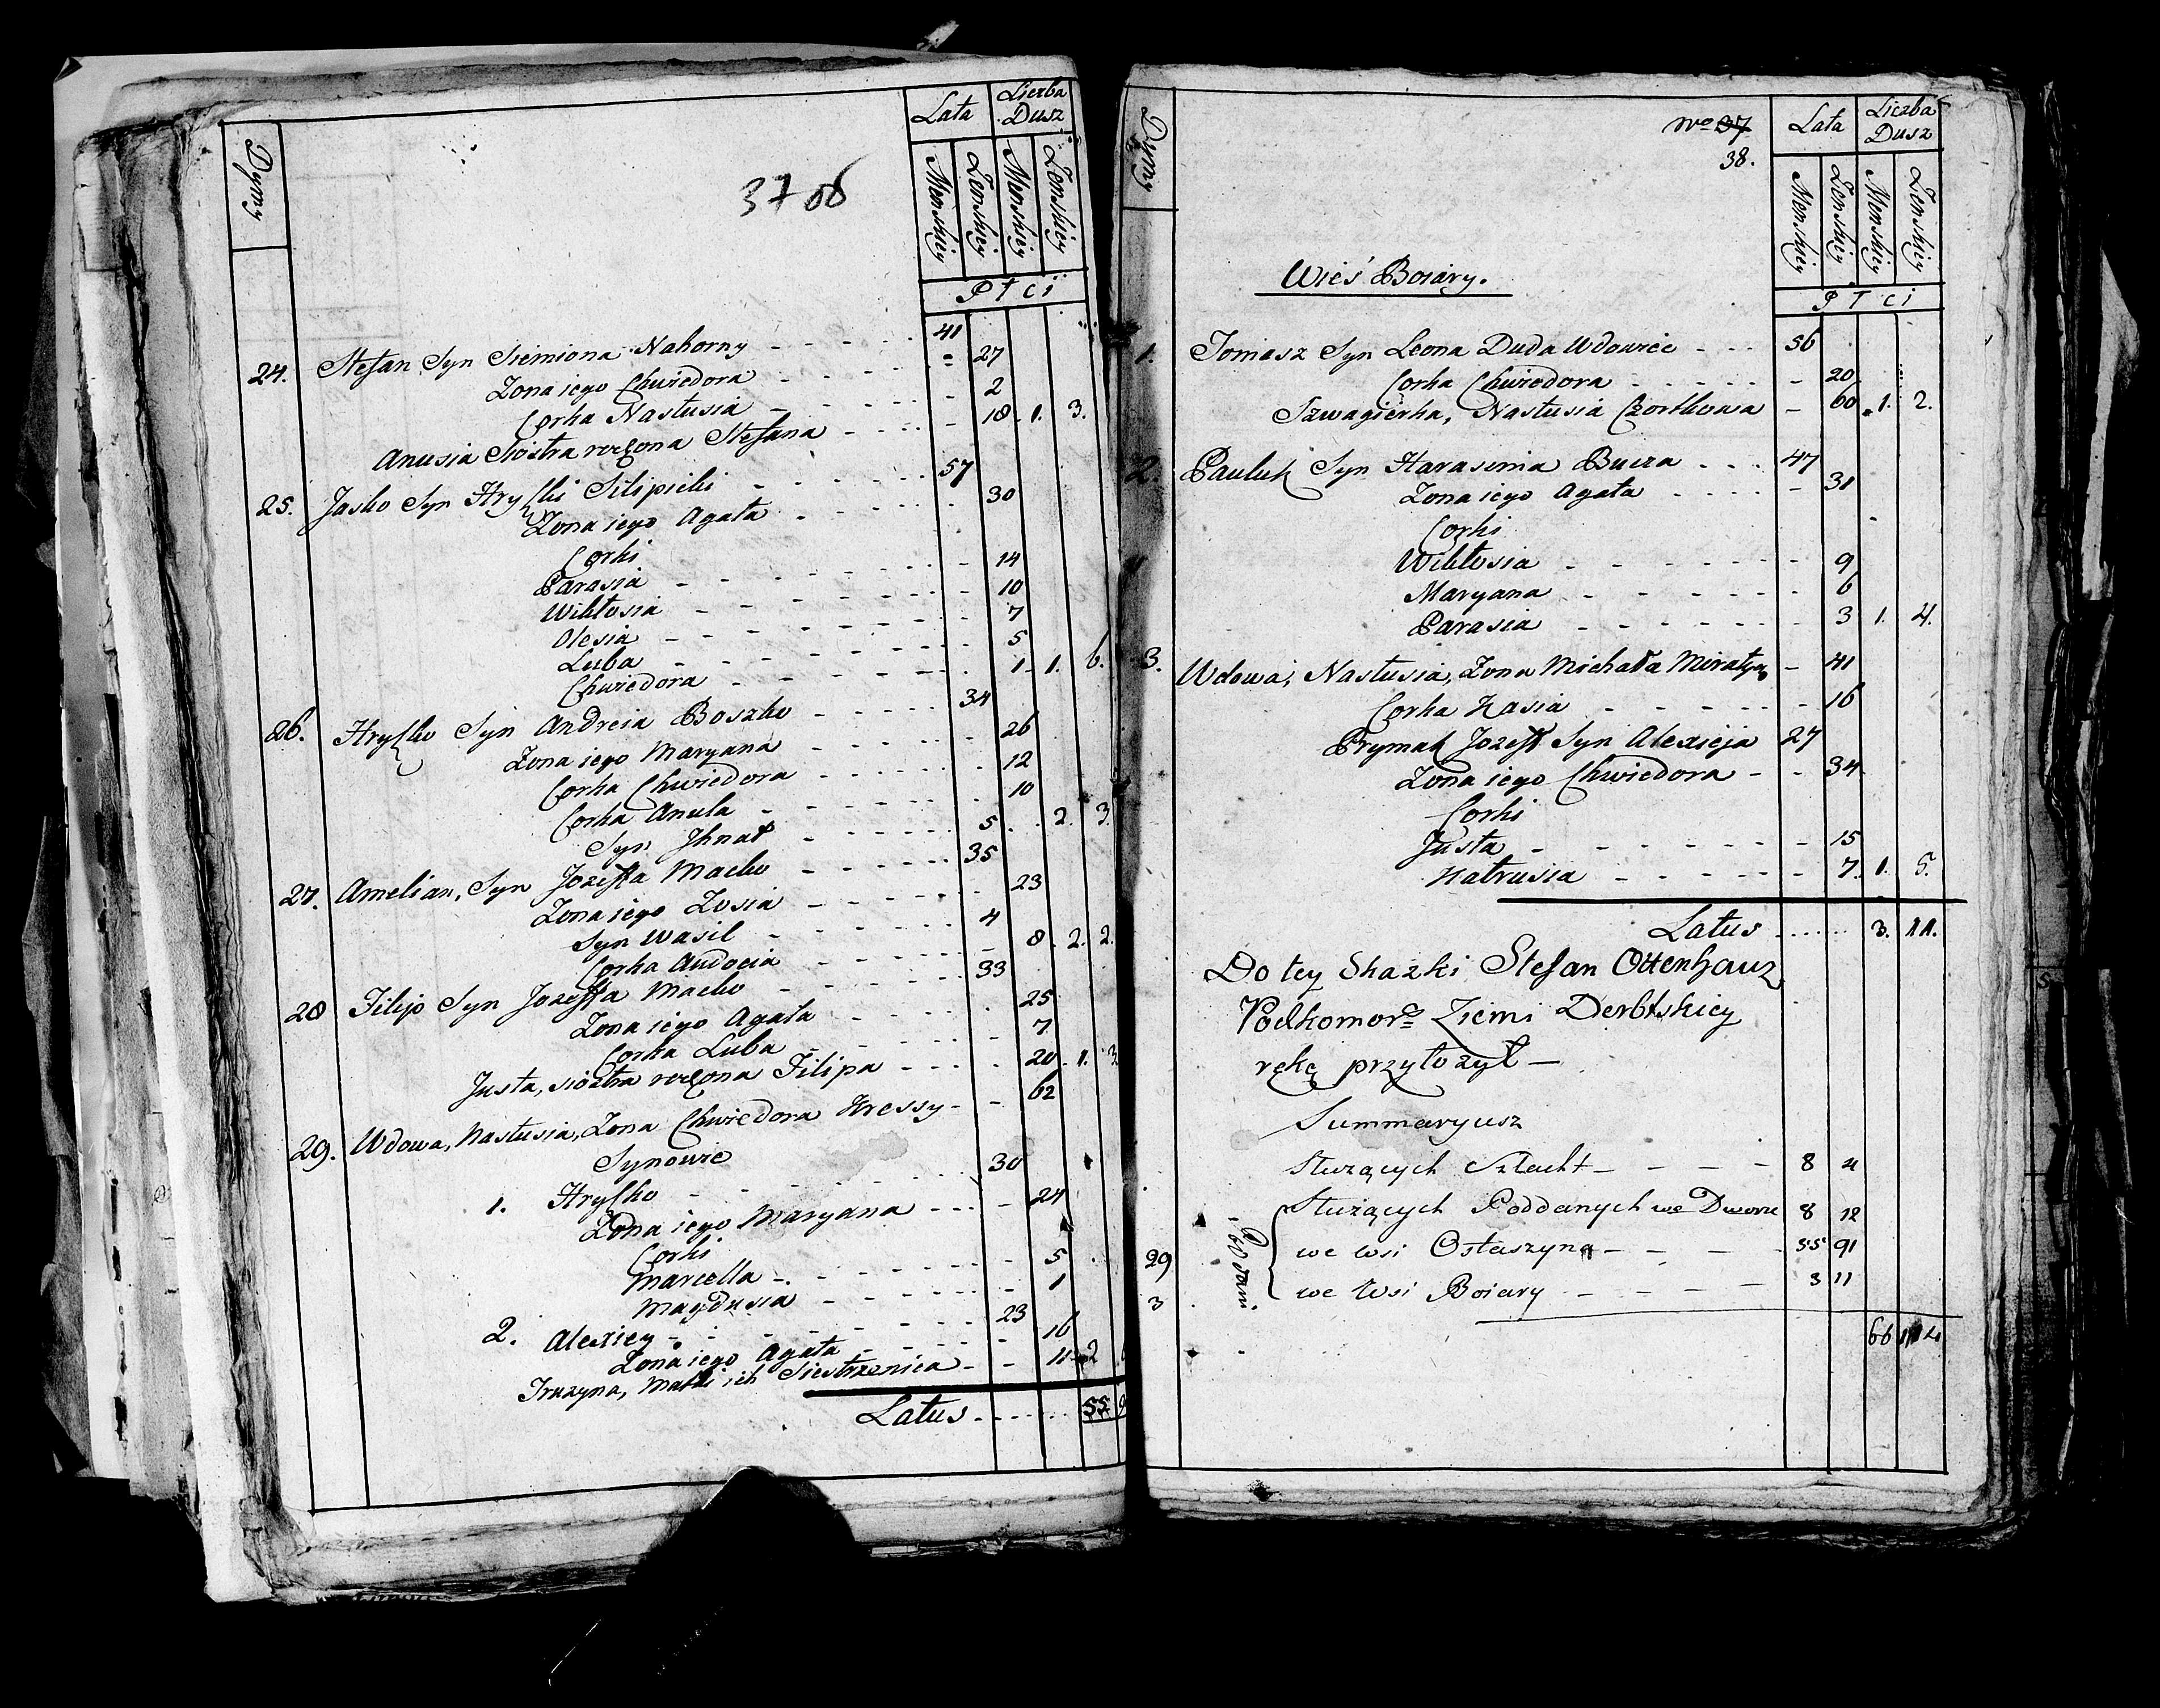 Dymy
Lata
Liczba
Dusz
Menskiey
Zenskiey
Menskiey
Zenskiey
P t c i
3706
24. Stefan Syn Siemiona Nahorny - - - - 41
Zona iego Chwiedora - - - - 27
Corka Nastusia - - - - 2
Anusia Siostra rodzona Stefana - - - - 18 1. 3.
25. Jasko Syn Hryszki Filipicki - - - - 57
Zona iego Agata - - - - 30
Corki
Parasia - - - - 14
Wiktosia - - - - 10
Olesia - - - - 7
Luba - - - - 5
Chwiedora - - - - 1 1. 6.
26. Hryszko Syn Andreia Boszko - - - - 34
Zona iego Maryana - - - - 26
Corka Chwiedora - - - - 12
Corka Anula - - - - 10
Syn Jhnat - - - - 5 2. 3.
27. Amelian, Syn Jozeffa Macko - - - - 35
Zona iego Zosia - - - - 23
Syn Wasil - - - - 4
Corka Audocia - - - - 8 2. 2.
28 Filip Syn Jozeffa Macko - - - - 33
Zona iego Agata - - - - 25
Corka Luba - - - - 7
Justa, siostra rodzona Filipa - - - - 20 1. 3
29. Wdowa, Nastusia, Zona Chwiedora Kressy - - 62
Synowie
1. Hryszko - - - - 30
Zona iego Maryana - - - - 24
Corki
Marcella - - - - 5
Magdusia - - - - 1
2. Alexiey - - - - 23
Zona iego Agata - - - - 16
Truzyna, Matki ich Siestrzenica - - 11 2
Latus - - - - 55
Dymy
No 37
38.
Lata
Liczba
Dusz
Menskiey
Zenskiey
Menskiey
Zenskiey
P T C i
Wieś Boiary.
1. Tomasz Syn Leona Duda Wdowiec - - - 56
Corka Chwiedora - - - - 20
Szwagierka, Nastusia Czortkowa - 60 1. 2.
2. Pauluk Syn Harasima Bucza - - - 47
Zona iego Agata - - - - 31
Corki
Wiktosia - - - - 9
Maryana - - - - 6
Parasia - - - - 3 1. 4.
3. Wdowa, Nastusia, Zona Michała - 41
Corka Kasia - - - - 16
Prymak Jozeff Syn Alexieja 27
Zona iego Chwiedora - - 34
Corki
Justa - - - - 15
Katrusia - - - - 7. 1. 5.
Latus . . . . . 3. 11.
Do tey Skazki Stefan Ottenhauz
Podkomor Ziemi Derbtskiey
rękę przyłożył —
Summaryusz
Służących Szlacht - - - - 8 4
Poddani.
Służących Poddanych we Dworze 8 12
29 we wsi Ostaszyna - - - - 55 91
3 we Wsi Boiary - - - - 3 11
66 114